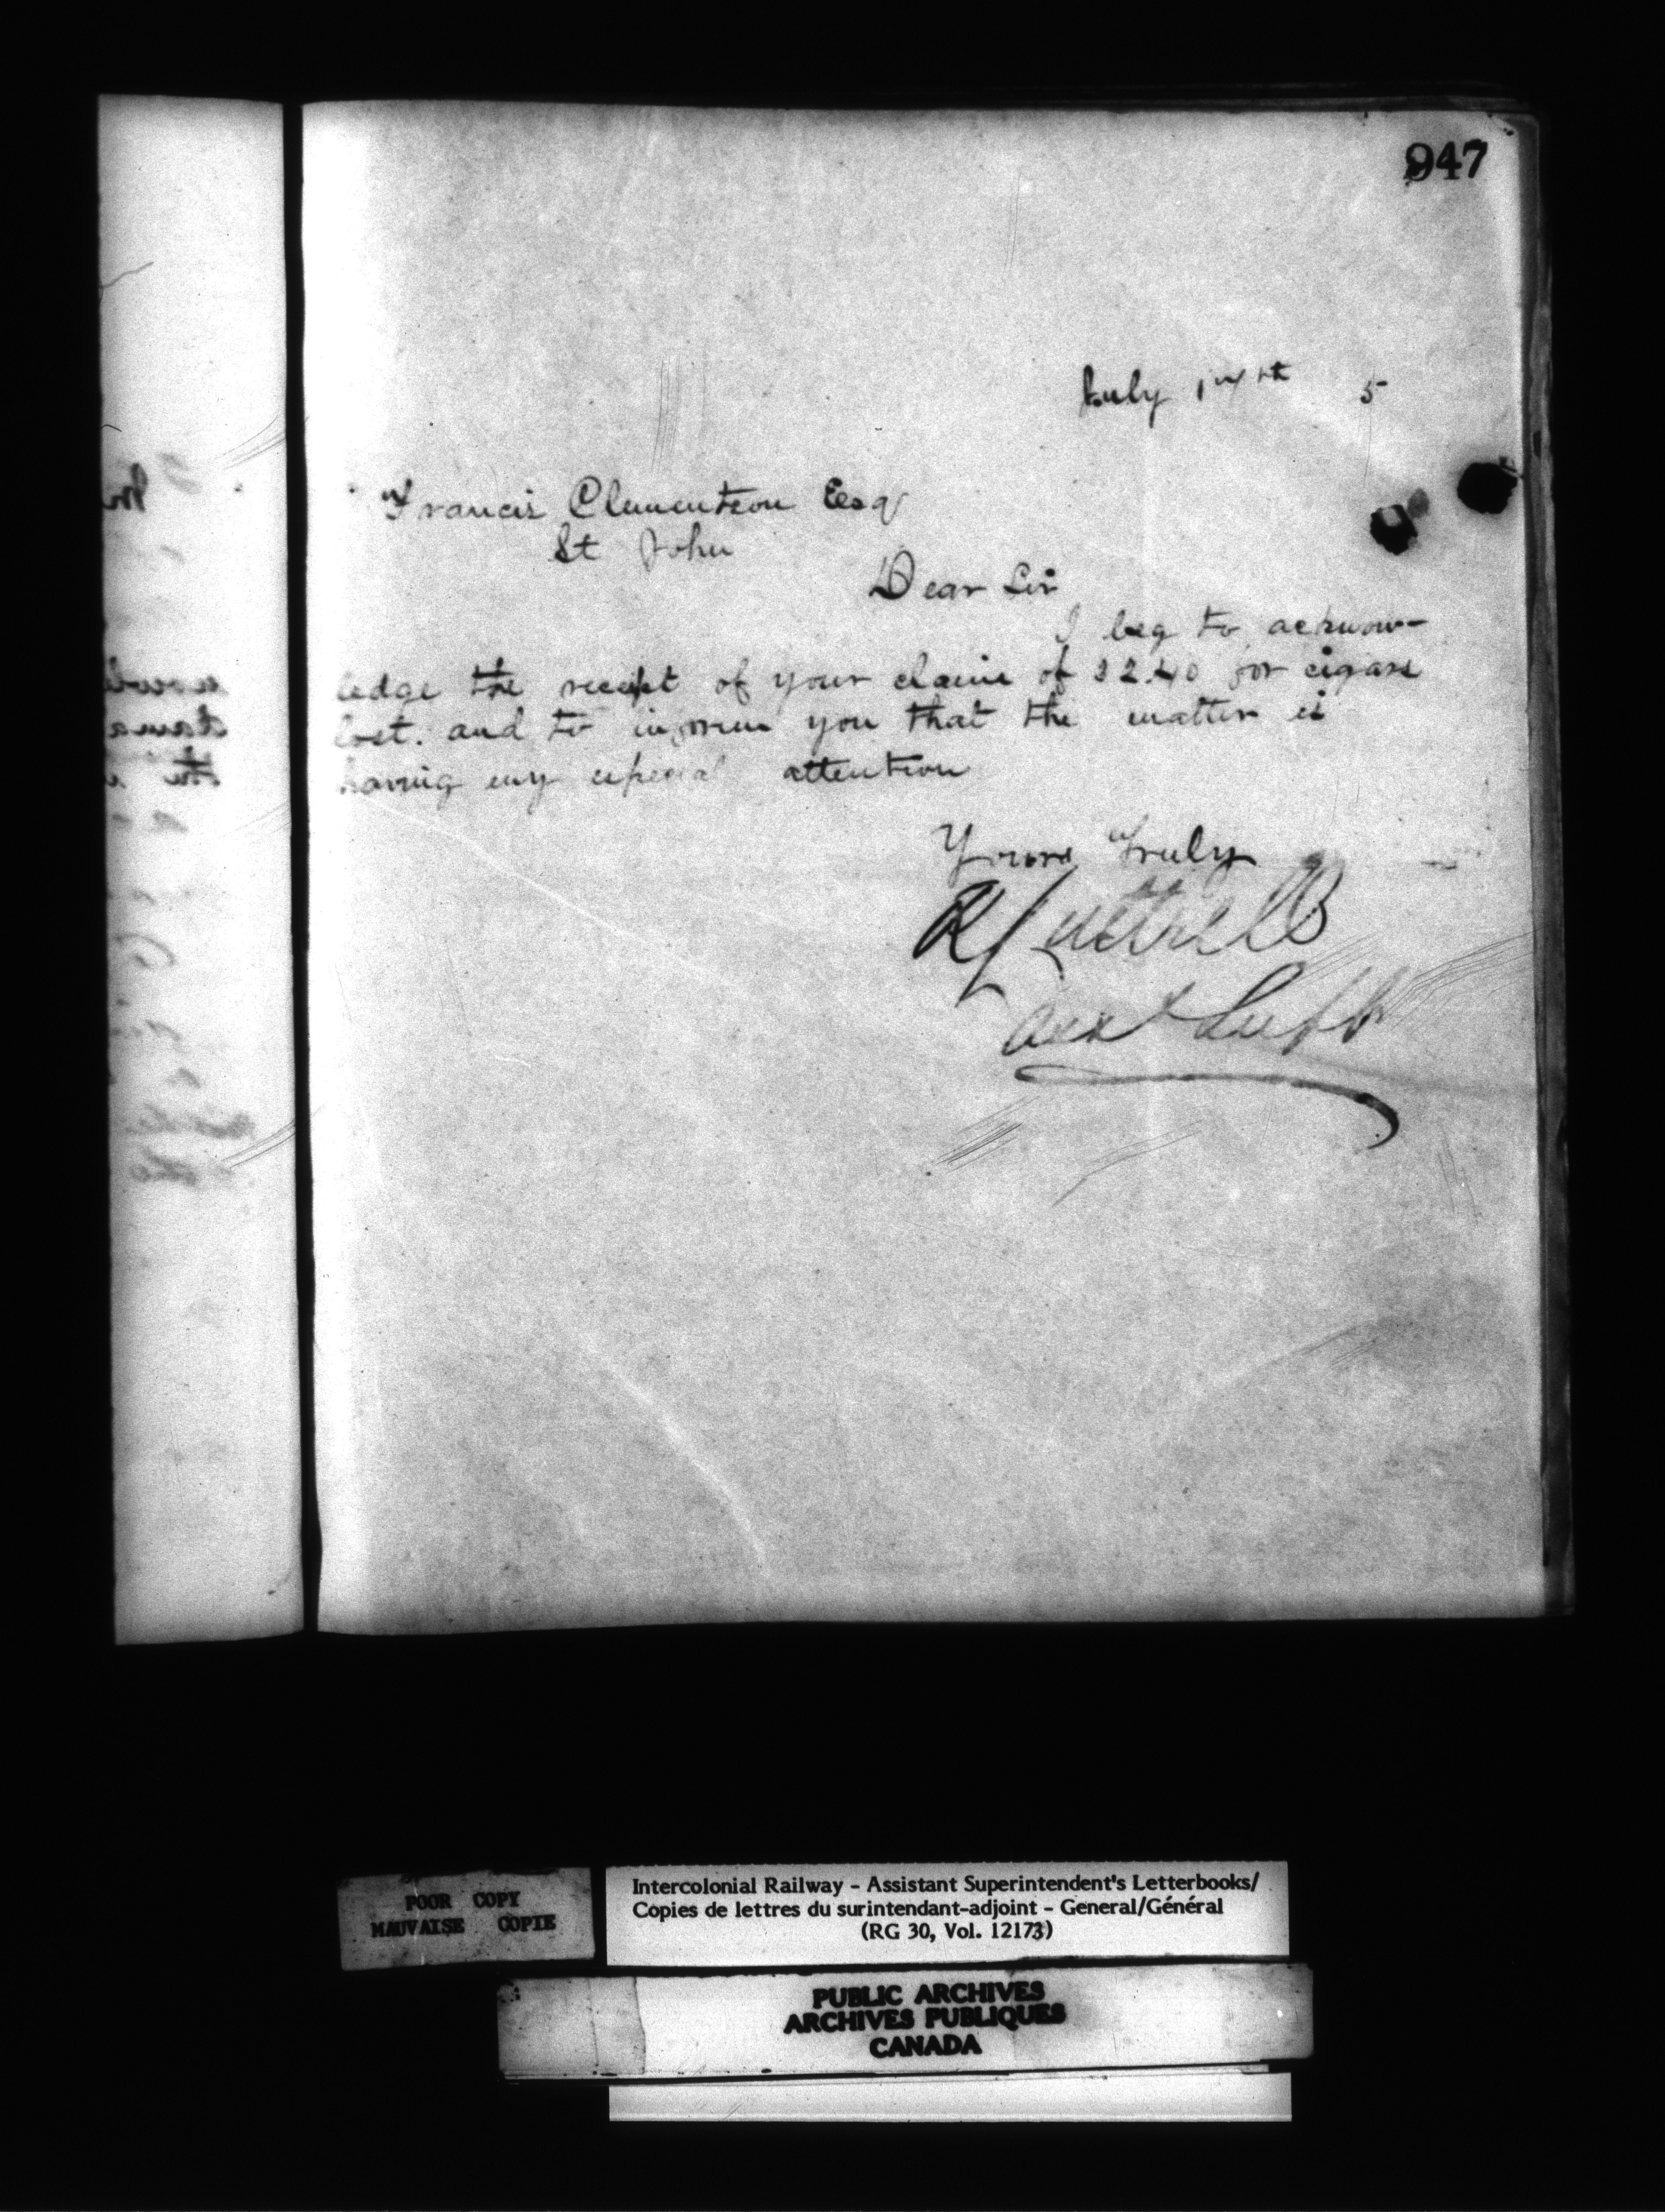 947
July 14th 5
Francis Clementson Esq
St John
Dear Sir
I beg to acknow-
ledge the receipt of your claim of $2.40 for cigars
lost. and to inform you that the matter is
having my especial attention
Yours Truly
R Luttrell
Asst Supt
POOR COPY
MAUVAISE COPIE
Intercolonial Railway - Assistant Superintendent's Letterbooks/
Copies de lettres du surintendant-adjoint - General/Général
(RG 30, Vol. 12173)
PUBLIC ARCHIVES
ARCHIVES PUBLIQUES
CANADA